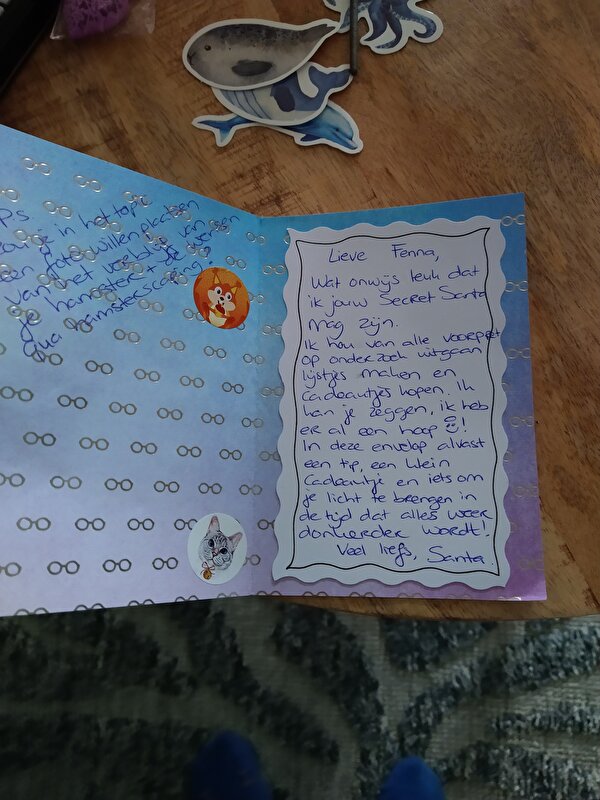 Ps
je in het topic
een foto willen plaatsen
van het verblijf van
je hamster + je wensen
qua hamsterscaping?
Lieve Fenna,
Wat onwijs leuk dat
ik jouw Secret Santa
mag zijn.
Ik hou van alle voorpret
op onderzoek uitgaan
lijstjes maken en
cadeautjes kopen. Ik
kan je zeggen, ik heb
er al een hoop !
In deze envelop alvast
een tip, een klein
cadeautje en iets om
je licht te brengen in
de tijd dat alles weer
donkerder wordt!
Veel liefs, Santa.